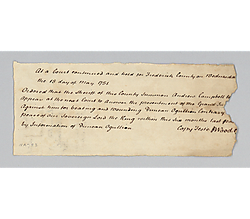 At a Court continued and held for Frederick County on Wednesday
the 13 day of May 1752
Ordered that the Sheriff of this County Summon Andrew Campbell to
appear at the next Court to Answer the presentment of the Grand Jury
Against him for beating and wounding Duncan Ogullion Contrary
peace of our Sovereign Lord the King within this six months last past
by Information of Duncan Ogullion
Copy Teste J Wood